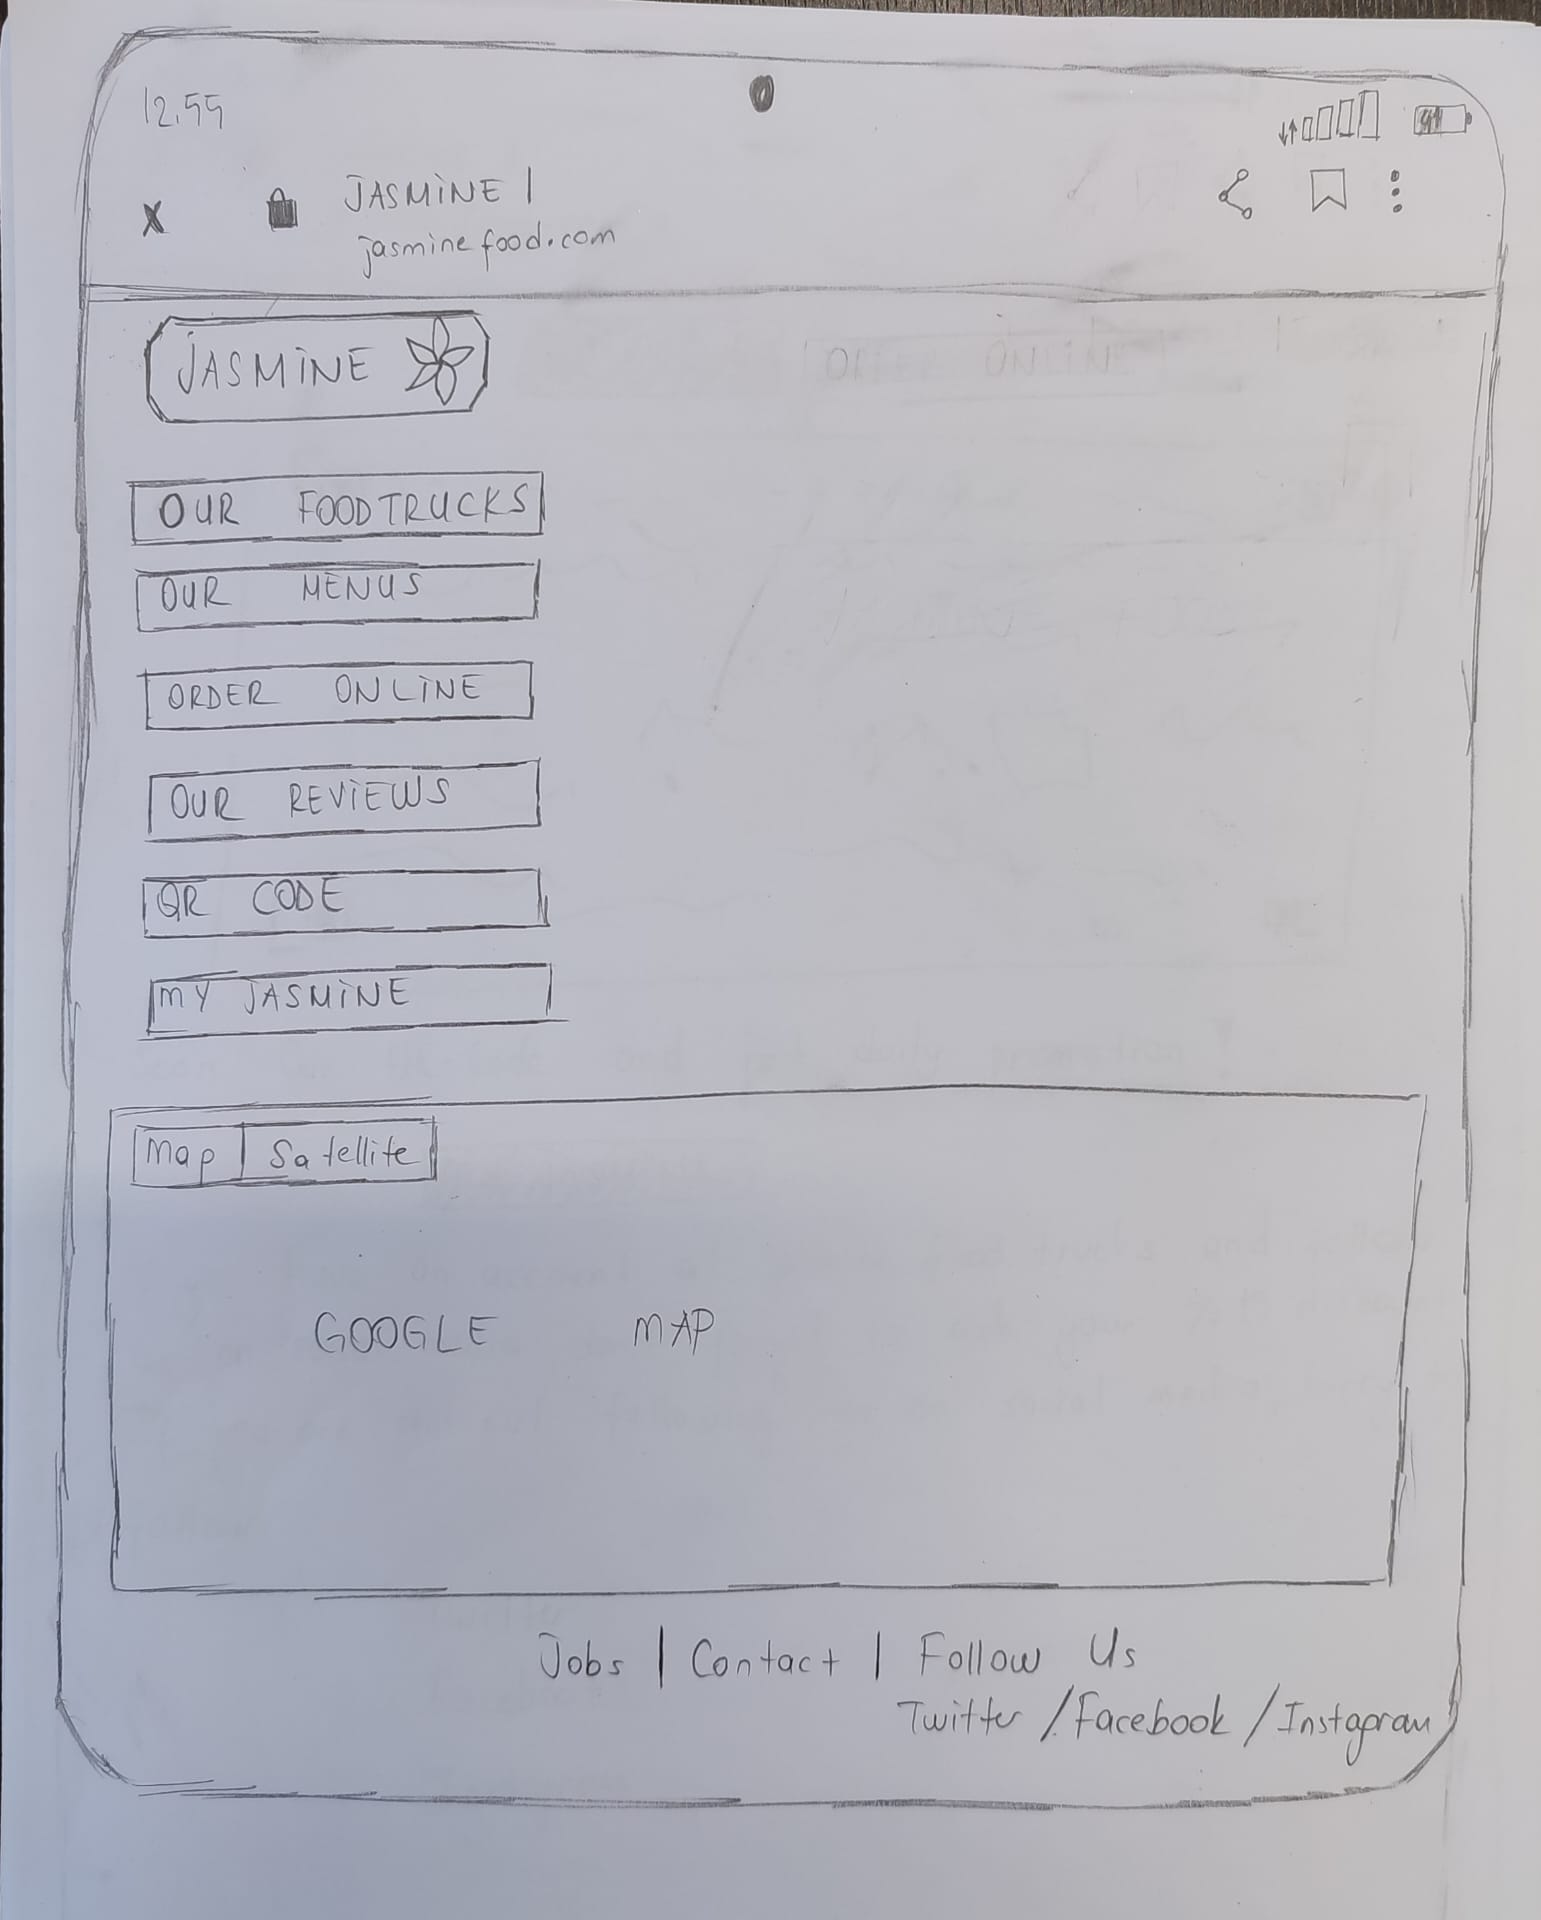 12.55
JASMINE |
jasminefood.com
JASMINE
OUR FOODTRUCKS
OUR MENUS
ORDER ONLINE
OUR REVIEWS
QR CODE
MY JASMINE
Map | Satellite
GOOGLE MAP
Jobs | Contact | Follow Us
Twitter / Facebook / Instagram